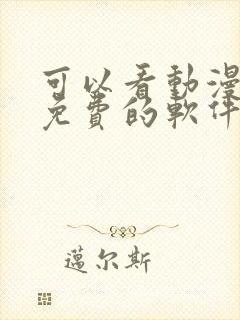 可以看動漫
免費的軟件
邁尔斯